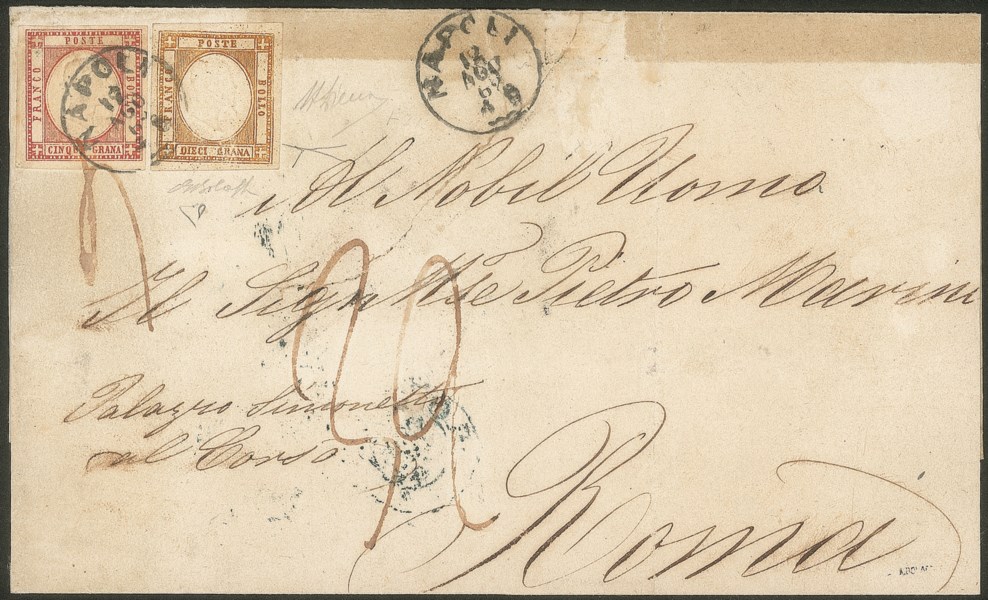 POSTE
FRANCO
BOLLO
CINQUE GRANA
POSTE
FRANCO
BOLLO
DIECI GRANA
NAPOLI
NAPOLI
12
AGO
Al Nobil Uomo
Il Sign Mse Pietro Marini
Palazzo Simonetti
al Corso
Roma